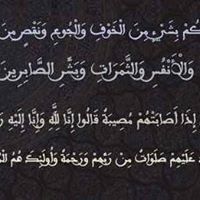 كُمْ بِشَيْءٍ مِنَ الْخَوْفِ وَالْجُوعِ وَنَقْصٍ مِنَ
وَالْأَنْفُسِ وَالثَّمَرَاتِ وَبَشِّرِ الصَّابِرِينَ
إِذَا أَصَابَتْهُمْ مُصِيبَةٌ قَالُوا إِنَّا لِلَّهِ وَإِنَّا إِلَيْهِ
عَلَيْهِمْ صَلَوَاتٌ مِنْ رَبِّهِمْ وَرَحْمَةٌ وَأُولَئِكَ هُمُ